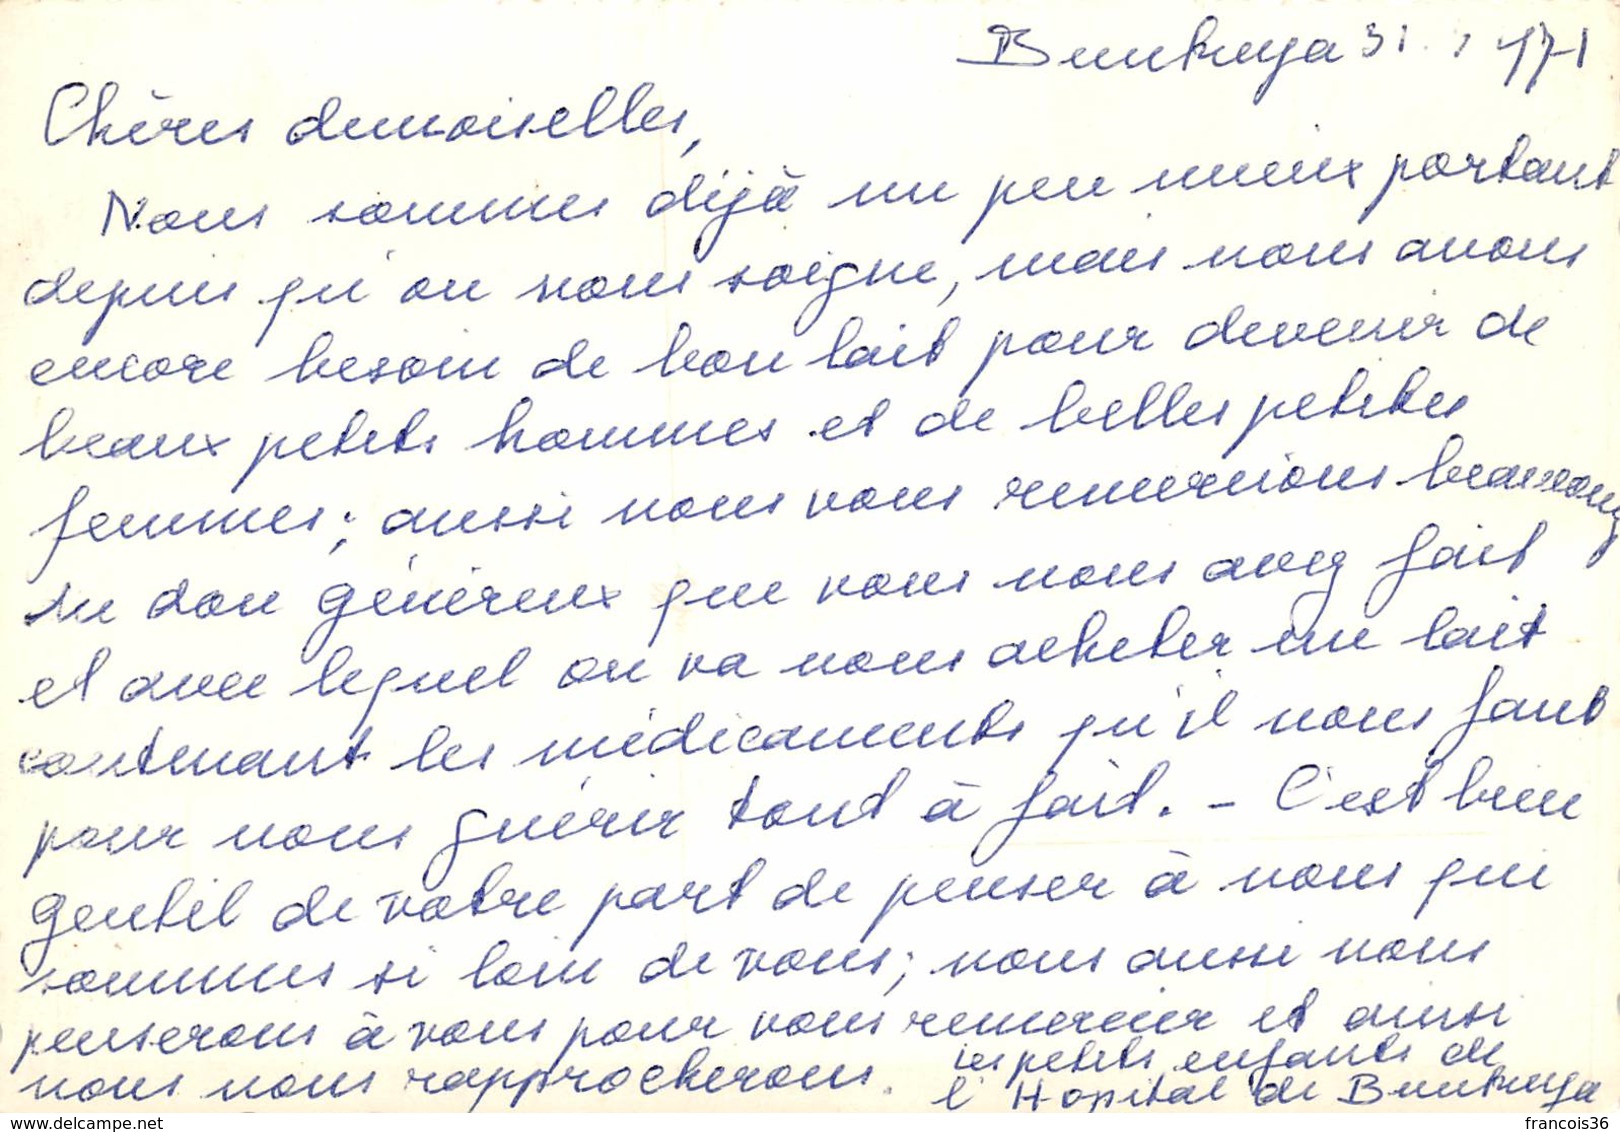 Bunkeya 31. 1 1971
Chères demoiselles,
Nous sommes déjà un peu mieux portant
depuis qu'on nous soigne, mais nous avons
encore besoin de bon lait pour devenir de
beaux petits hommes et de belles petites
femmes; aussi nous vous remercions beaucoup
du don généreux que vous nous avez fait
et avec lequel on va nous acheter un lait
contenant les médicaments qu'il nous faut
pour nous guérir tout à fait. - C'est bien
gentil de votre part de penser à nous qui
sommes si loin de vous; nous aussi nous
penserons à vous pour vous remercier et ainsi
nous nous rapprocherons.
les petits enfants de
l'Hopital de Bunkeya
© www.delcampe.net
francois36